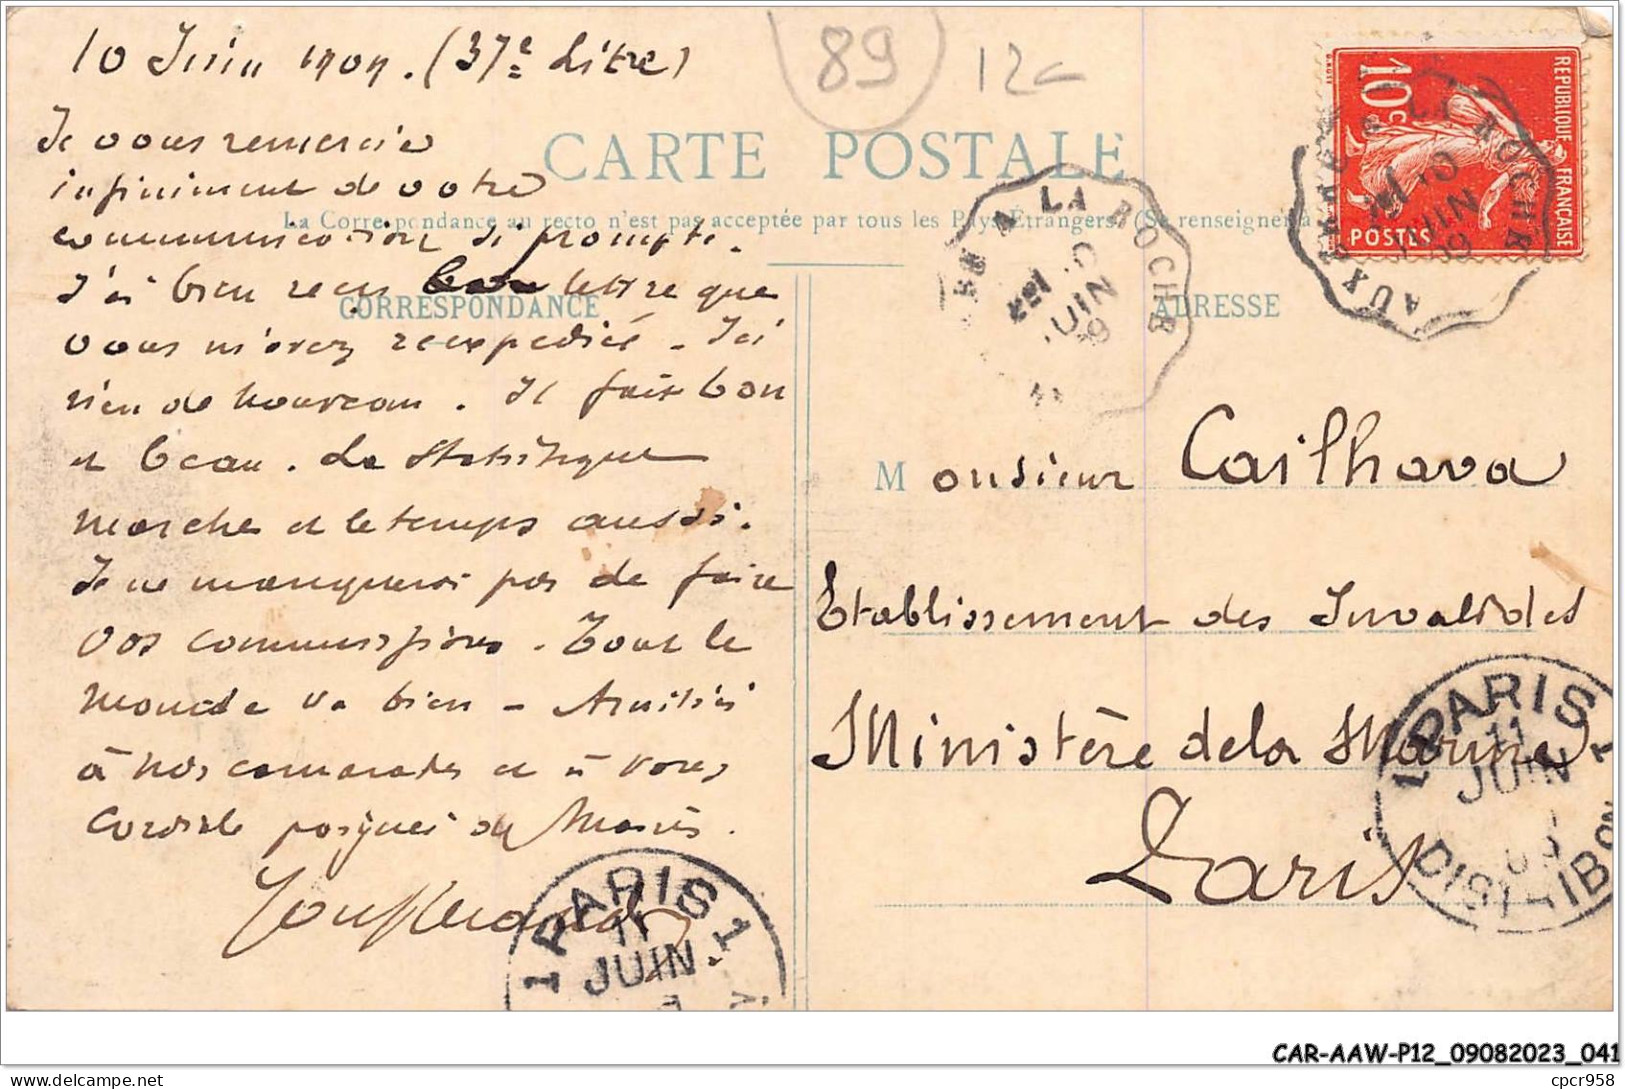 10 Juin 1909. (37e Litre)
89
12c
CARTE POSTALE
La Correspondance au recto n'est pas acceptée par tous les Pays Étrangers. (Se renseigner à
CORRESPONDANCE
ADRESSE
Je vous remercie
infiniment de votre
communication si prompte.
J'ai bien reçu lettre que
vous m'avez réexpédiée. Ici
rien de nouveau. Il fait bon
et beau. La Statistique
marche et le temps aussi.
Je ne manquerai pas de faire
vos commissions. Tout le
monde va bien - Amitiés
à nos camarades et à vous
cordiale poignée de Mains.
REPUBLIQUE FRANÇAISE
10c
POSTES
A LA ROCHE
JUIN
09
AUX
A LA ROCHE
10
JUIN
09
Monsieur Cailhava
Etablissement des Invalides
Ministère de la Marine
Paris
1 PARIS 1
11
JUIN
DISTRIBON
1 PARIS 1
11
JUIN
CAR-AAW-P12_09082023_041
cpcr958